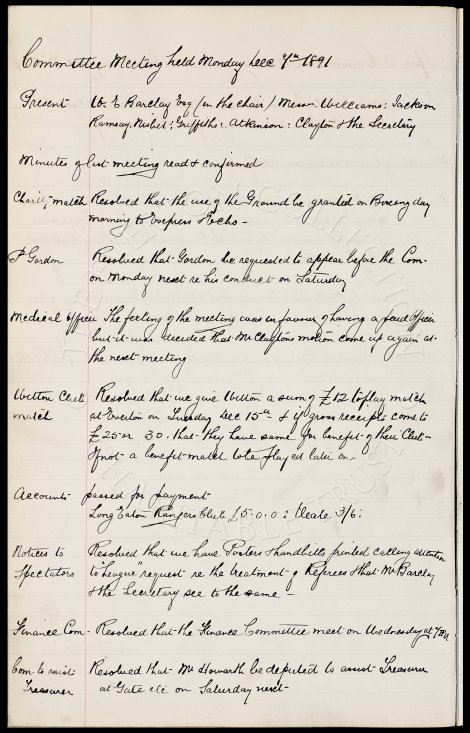 Committee Meeting held Monday Dec 7th 1891
Present W. E Barclay Esq (in the chair) Messrs Williams: Jackson
Ramsay, Nisbet: Griffiths: Atkinson: Clayton & the Secretary
Minutes of last meeting read & confirmed
Charity match Resolved that the use of the Ground be granted on Boxing day
morning to Express & Echo -
P Gordon Resolved that Gordon be requested to appear before the Com-
on Monday next re his conduct on Saturday
Medical Officer The feeling of the meeting was in favour of having a paid Officer
but it was decided that Mr Claytons motion come up again at
the next meeting
Witton Club Resolved that we give Witton a sum of £12 to play match
match at Everton on Tuesday Dec 15th & if gross receipts come to
£25 or 30. that they have same for benefit of their Club -
If not a benefit match to be played later on.
Accounts passed for payment
Long Eaton Rangers Club £5.0.0: Veale 3/6:
Notices to Resolved that we have Posters & handbills printed calling attention
Spectators to "League" request re the treatment of Referees & that Mr Barclay
& the Secretary see to the same -
Finance Com- Resolved that the Finance Committee meet on Wednesday at
Com- to assist Resolved that Mr Howarth be deputed to assist Treasurer
Treasurer at Gate etc on Saturday next -
THE COLLECTION
CHARITABLE TRUST